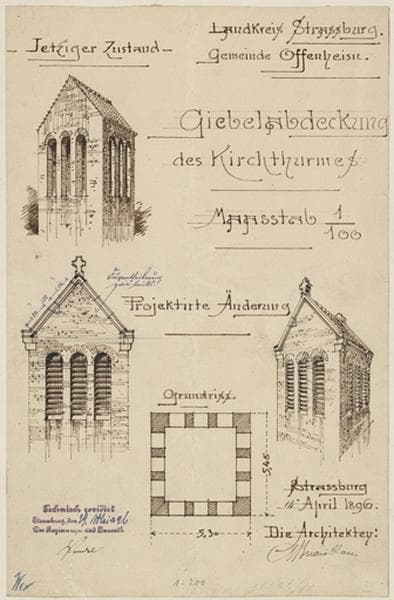 Landkreis Strassburg.
- Jetziger Zustand -
Gemeinde Offenheim.
Giebelabdeckung
des Kirchthurmes
Maasstab 1/100
Projektirte Änderung
Grundriss.
5,45
5,30
Strassburg
14 April 1896.
Die Architekten:
Technisch revidirt
Strassburg, den 19 Mai 96
Der Regierungs- und Baurath
1:200